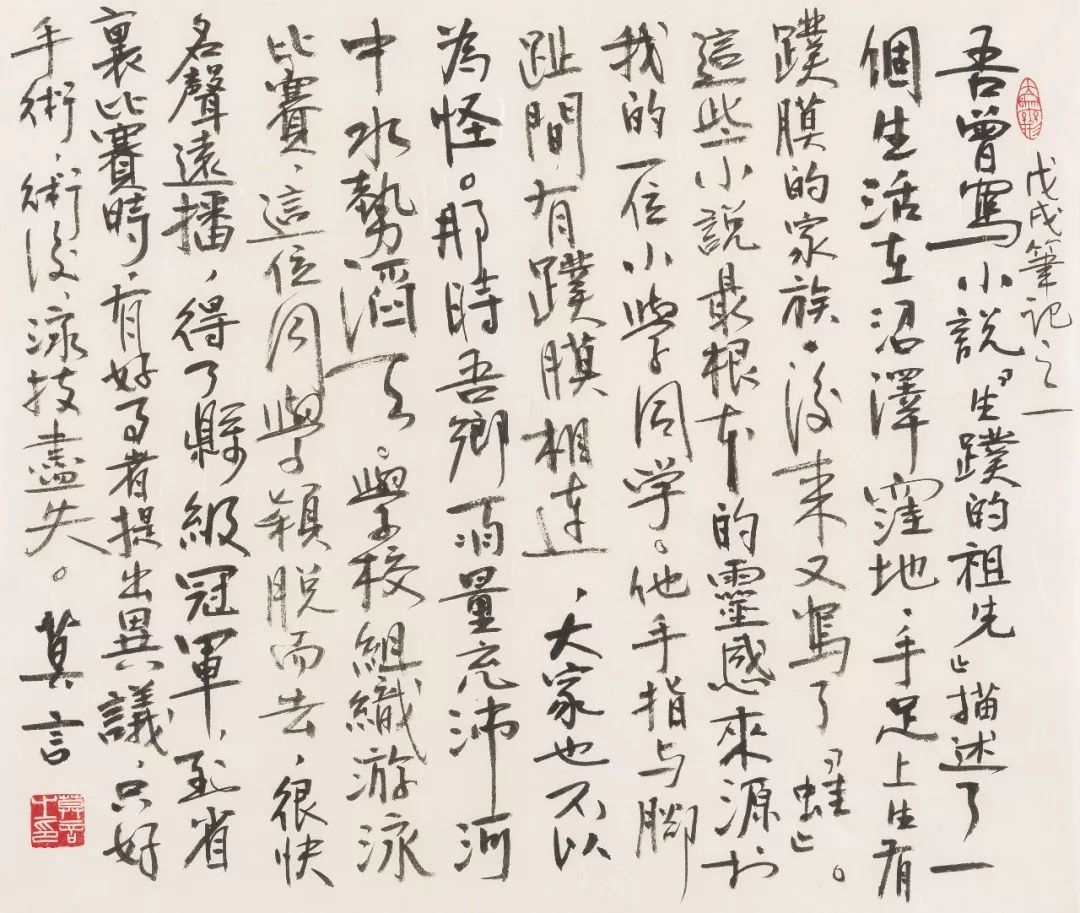 戊戌筆記之一
吾曾寫小說「生蹼的祖先」描述了一
個生活在沼澤窪地,手足上生有
蹼膜的家族。後来又寫了「蛙」。
這些小說最根本的靈感來源於
我的一位小學同学。他手指与脚
趾間,有蹼膜相連,大家也不以
為怪。那時吾鄉雨量充沛河
中水勢滔天。學校組織游泳
比賽,這位同學穎脱而去,很快
名聲遠播,得了縣級冠軍,到省
裏比賽時,有好事者提出異議,只好
手術,術後,泳技盡失。莫言